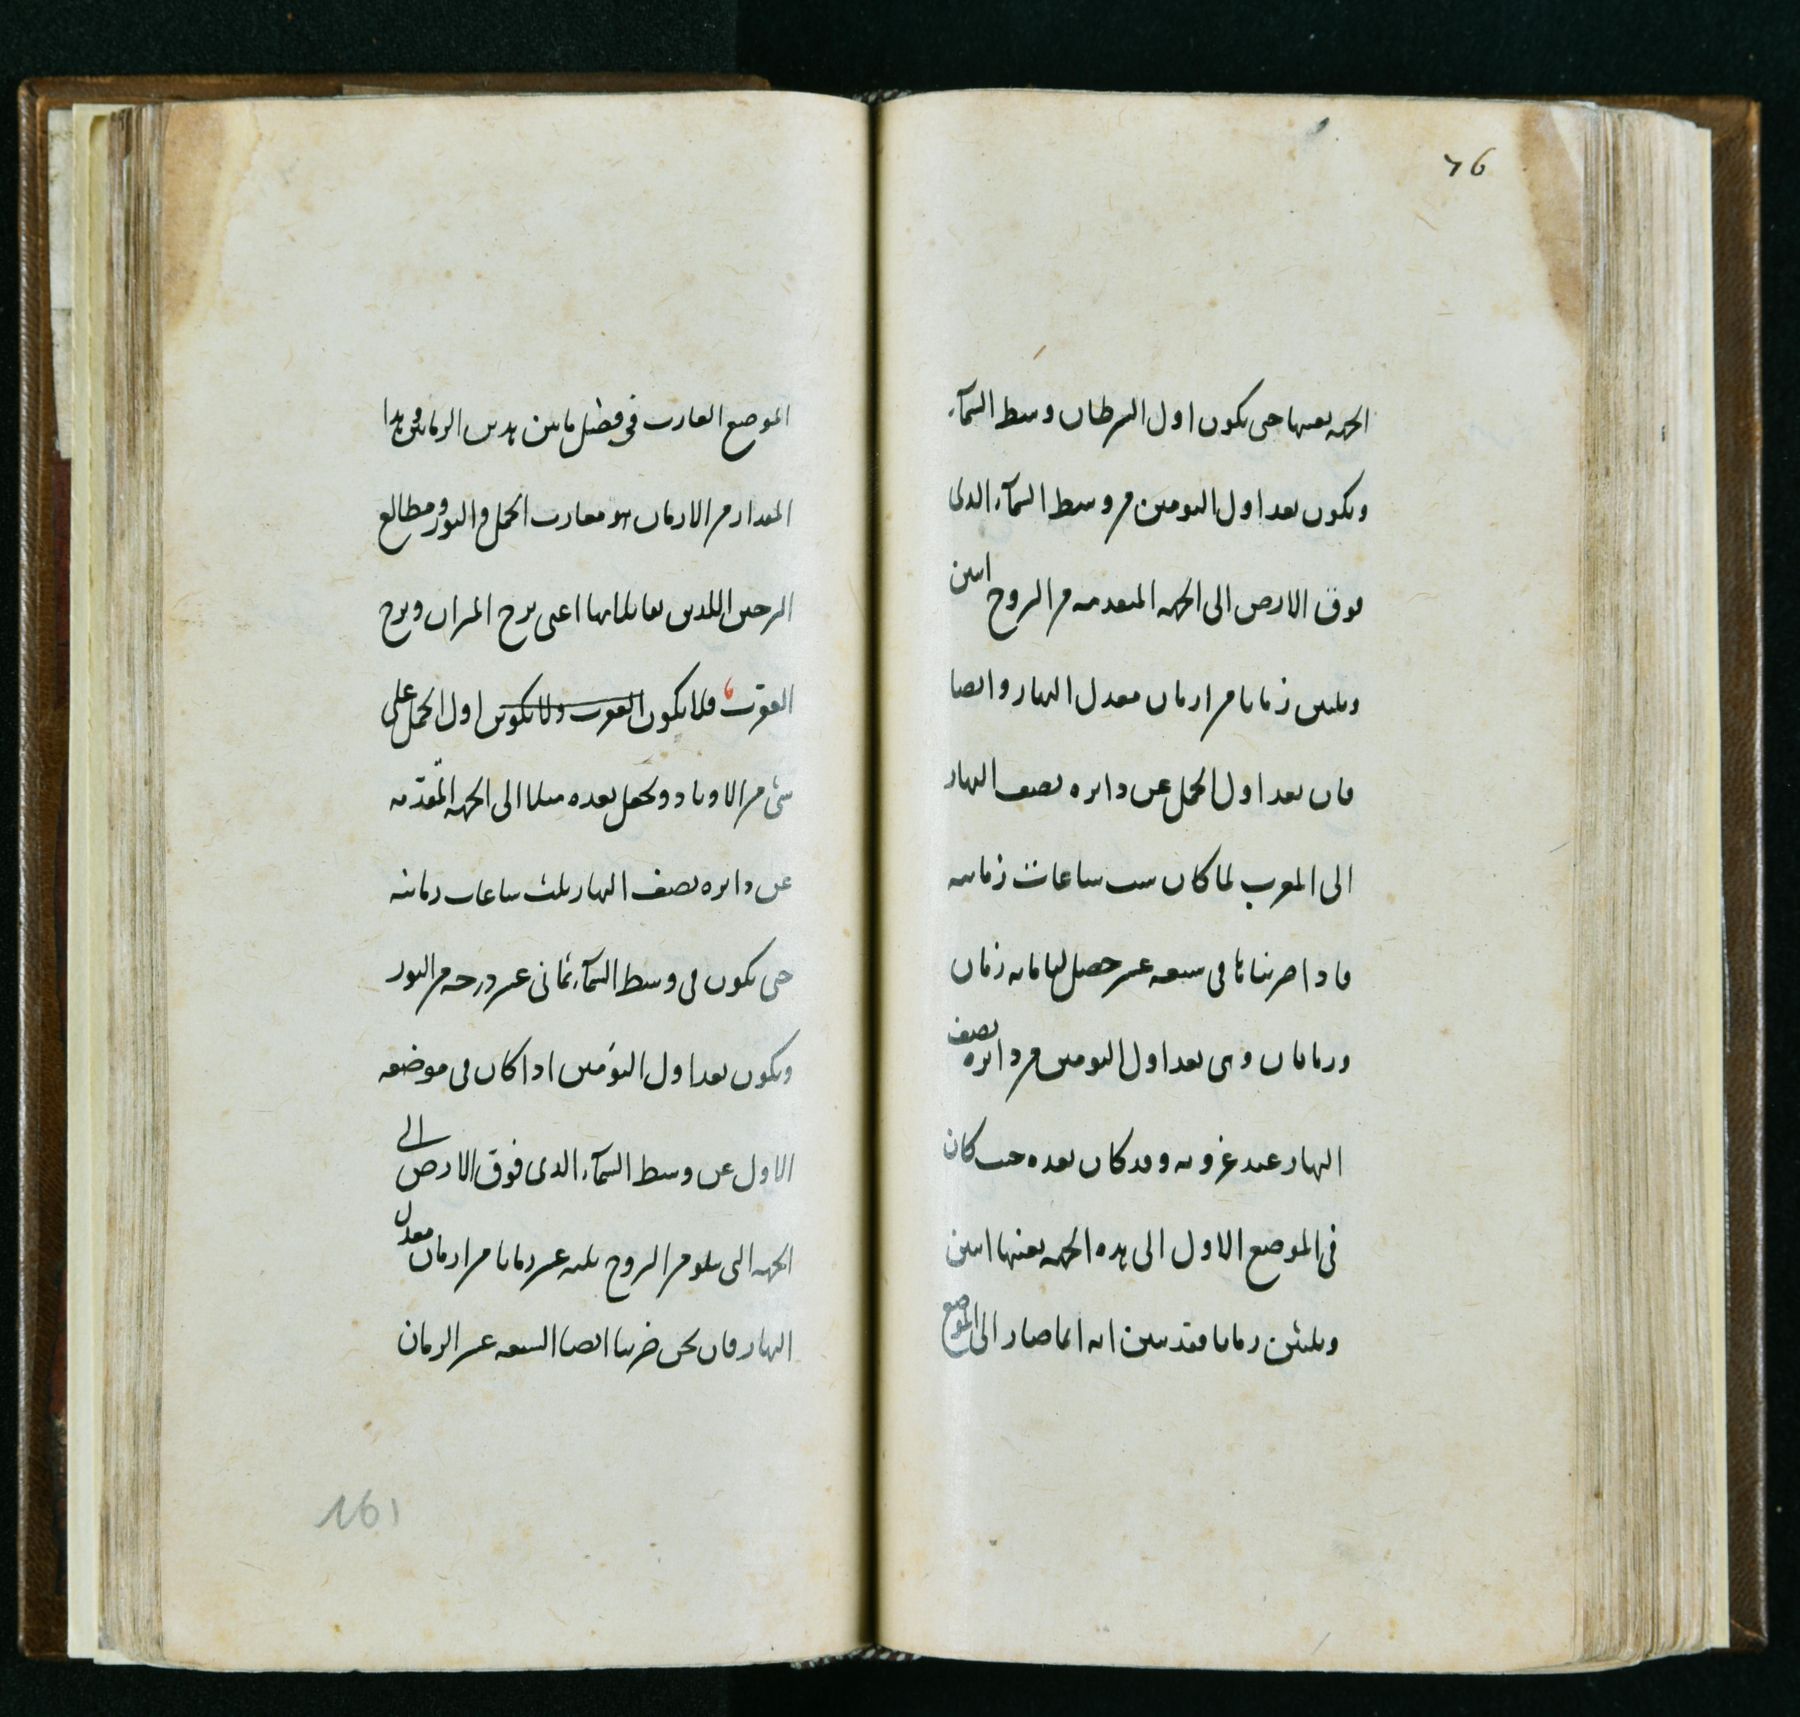 76
الجهه بعينها حتى يكون اول السرطان وسط السمآء
ويكون بعد اول التومين من وسط السمآء الذى
فوق الارض الى الجهه المتقدمه من البروج اثنين
وثلثين زمانا من ازمان معدل النهار وايضا
فان بعد اول الحمل عن دائره نصف النهار
الى المغرب لما كان ست ساعات زمانيه
فاذا ضربناها فى سبعه عشر حصل لها مائه زمان
وزمانان وهى بعد اول التومين من دائره نصف
النهار عند غروبه وقد كان بعده حيث كان
فى الموضع الاول الى هذه الجهه بعينها اثنين
وثلثين زمانا فقد تبين انه انما صار الى الموضع
الموضع الغارب فى فضل مابين هذين الزمانين وهذا
المقدار من الازمان هو مغارب الحمل والثور ومطالع
البرجين اللذين يقابلانهما اعنى برج الميزان وبرج
العقرب فلا يكون العقرب ولا يكونن اول الحمل على
شئ من الاوتاد ونجعل بعده مثلا الى الجهه المتقدمه
عن دائره نصف النهار ثلث ساعات زمانيه
حتى يكون فى وسط السمآء ثمانى عشر درجه من الثور
ويكون بعد اول التومين اذا كان فى موضعه
الاول عن وسط السمآء الذى فوق الارض الى
الجهه التى تتلو من البروج ثلثه عشر زمانا من ازمان معدل
النهار فان نحن ضربنا ايضا السبعه عشر الزمان
161